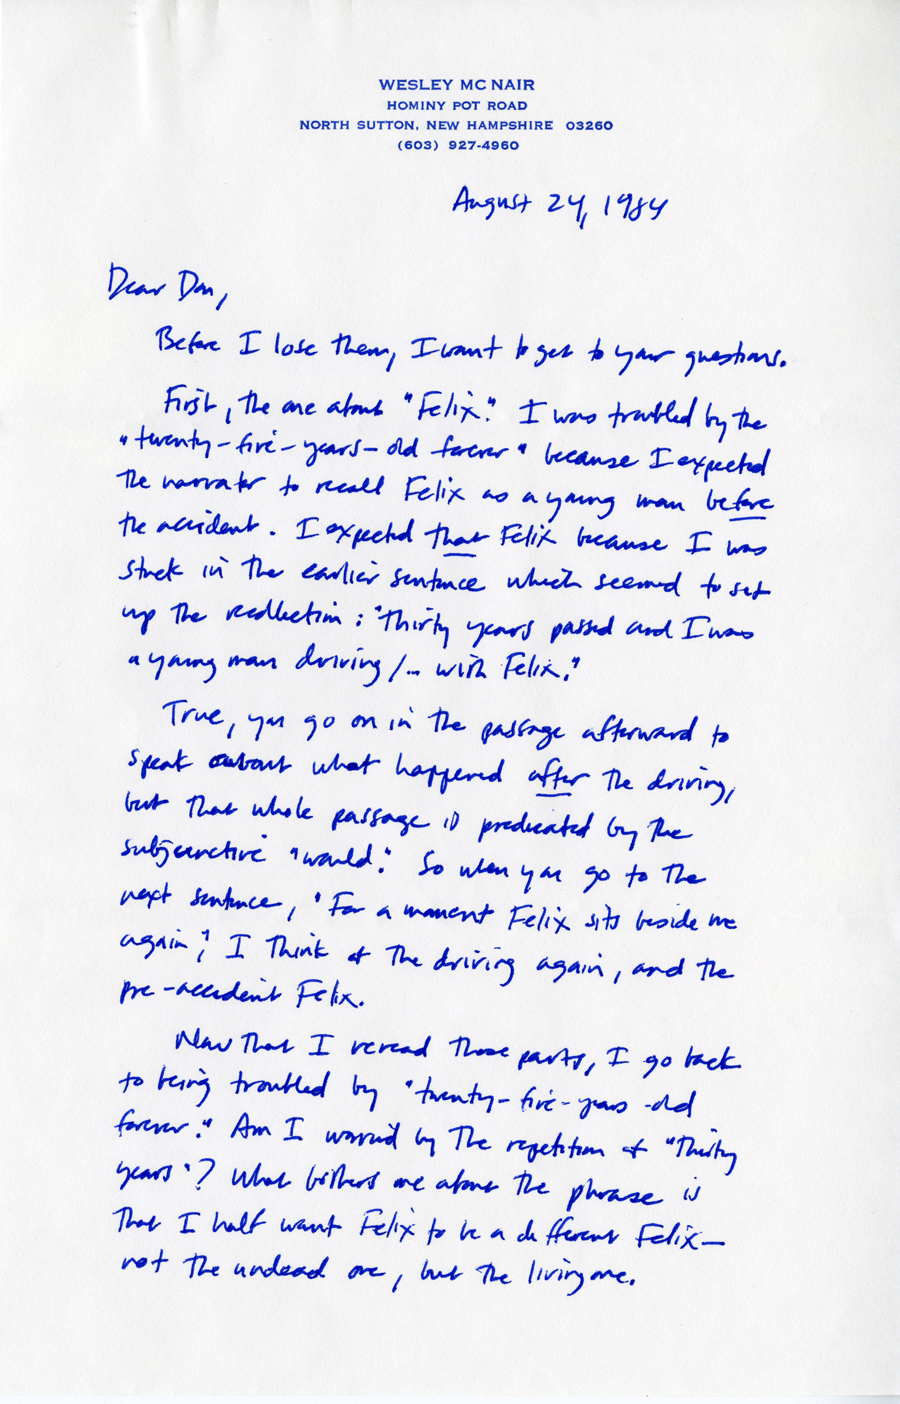 WESLEY MC NAIR
HOMINY POT ROAD
NORTH SUTTON, NEW HAMPSHIRE 03260
(603) 927-4960
August 24, 1984
Dear Don,
Before I lose them, I want to get to your questions.
First, the one about "Felix." I was troubled by the
"twenty-five-years-old forever" because I expected
the narrator to recall Felix as a young man before
the accident. I expected that Felix because I was
stuck in the earlier sentence which seemed to set
up the recollection: "Thirty years passed and I was
a young man driving /... with Felix."
True, you go on in the passage afterward to
speak about what happened after the driving,
but that whole passage is predicated by the
subjunctive "would." So when you go to the
next sentence, "For a moment Felix sits beside me
again", I think of the driving again, and the
pre-accident Felix.
Now that I reread those parts, I go back
to being troubled by "twenty-five-years-old
forever." Am I worried by the repetition of "Thirty
years"? What bothers me about the phrase is
that I half want Felix to be a different Felix—
not the undead one, but the living one.